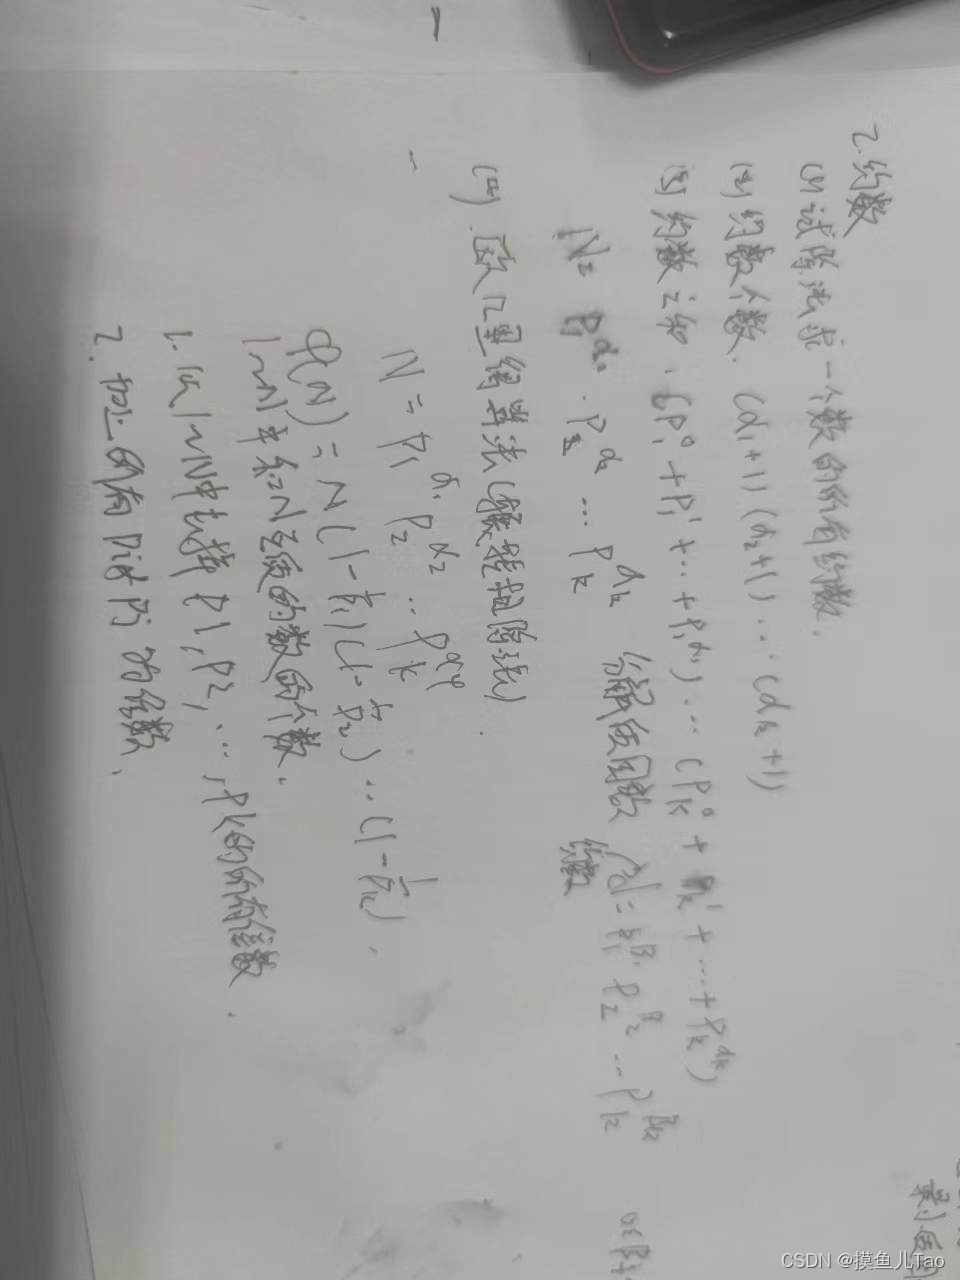 2.约数
(1)试除法求一个数的所有约数.
(2)约数个数. (α₁+1)(α₂+1)...(αₖ+1)
(3)约数之和. (P₁⁰+P₁¹+...+P₁^α₁)...(Pₖ⁰+Pₖ¹+...+Pₖ^αₖ)
N= P₁^α₁·P₂^α₂...Pₖ^αₖ 分解质因数 d=P₁^β₁ P₂^β₂...Pₖ^βₖ
约数
(四).欧几里得算法(辗转相除法).
N=P₁^α₁ P₂^α₂...Pₖ^αₖ
φ(N)=N(1-1/P₁)(1-1/P₂)...(1-1/Pₖ).
1~N中和N互质的数的个数.
1.从1~N中去掉P1,P2,...,Pk的所有倍数.
2.加上所有Pi*Pj的倍数.
CSDN @摸鱼儿Tao